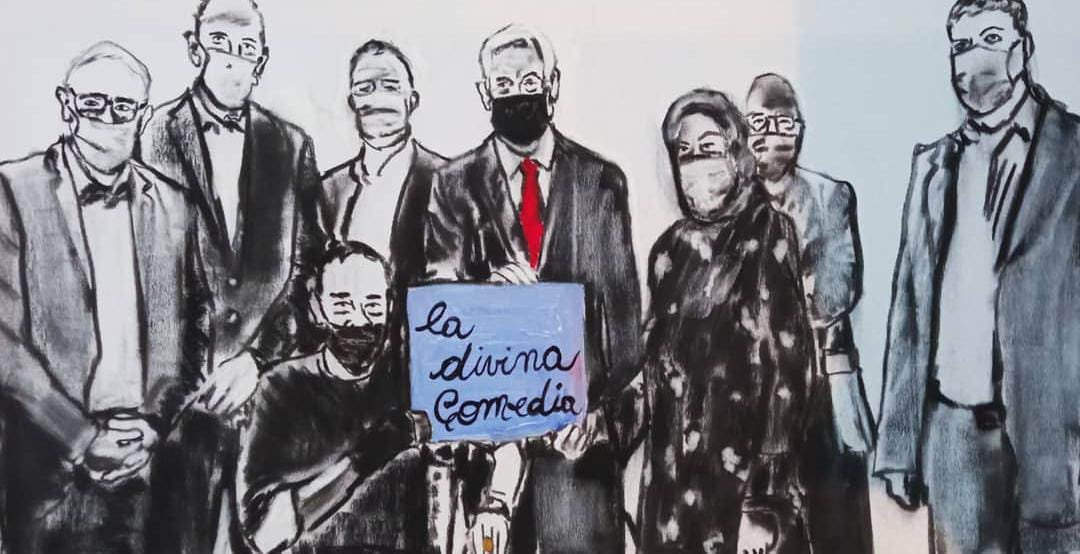 la
divina
Comedia